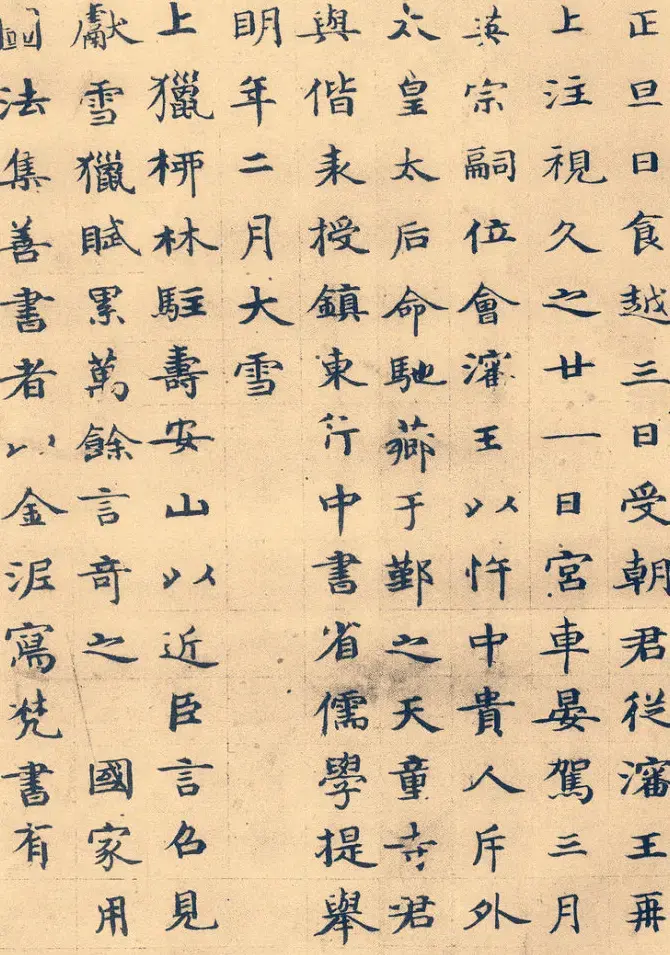 正旦日食越三日受朝君從瀋王再
上注視久之廿一日宮車晏駕三月
英宗嗣位會瀋王以忤中貴人斥外
太皇太后命馳薌于鄞之天童寺君
與偕來授鎮東行中書省儒學提舉
明年二月大雪
上獵栁林駐壽安山以近臣言名見
獻雪獵賦累萬餘言奇之 國家用
國法集善書者以金泥寫梵書有